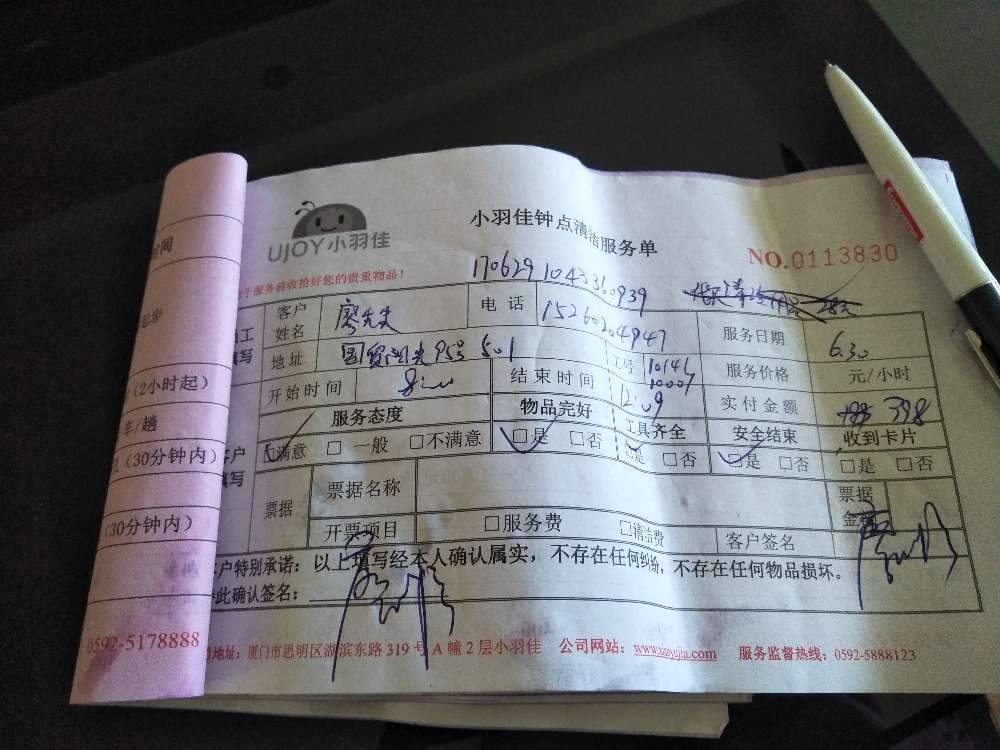 UJOY小羽佳
小羽佳钟点清洁服务单
NO.0113830
于服务前收拾好您的贵重物品!
170629 1043360939
客户姓名 廖先生 电话 15260204947 服务日期 6.30
地址 国贸阳光95号 501 工号 10141 10007 服务价格 元/小时
填写
开始时间 结束时间 12:09 实付金额 398
服务态度 物品完好 工具齐全 安全结束 收到卡片
□满意 □一般 □不满意 □是 □否 □是 □否 □是 □否 □是 □否
票据 票据名称 票据金额
开票项目 □服务费 □清洁费 客户签名
客户特别承诺:以上填写经本人确认属实,不存在任何纠纷,不存在任何物品损坏。
此确认签名:
地址:厦门市思明区湖滨东路 319 号 A 幢 2 层小羽佳 公司网站: 服务监督热线:0592-5888123
起步
(2小时起)
车/趟
(30分钟内)
(30分钟内)
0592-5178888